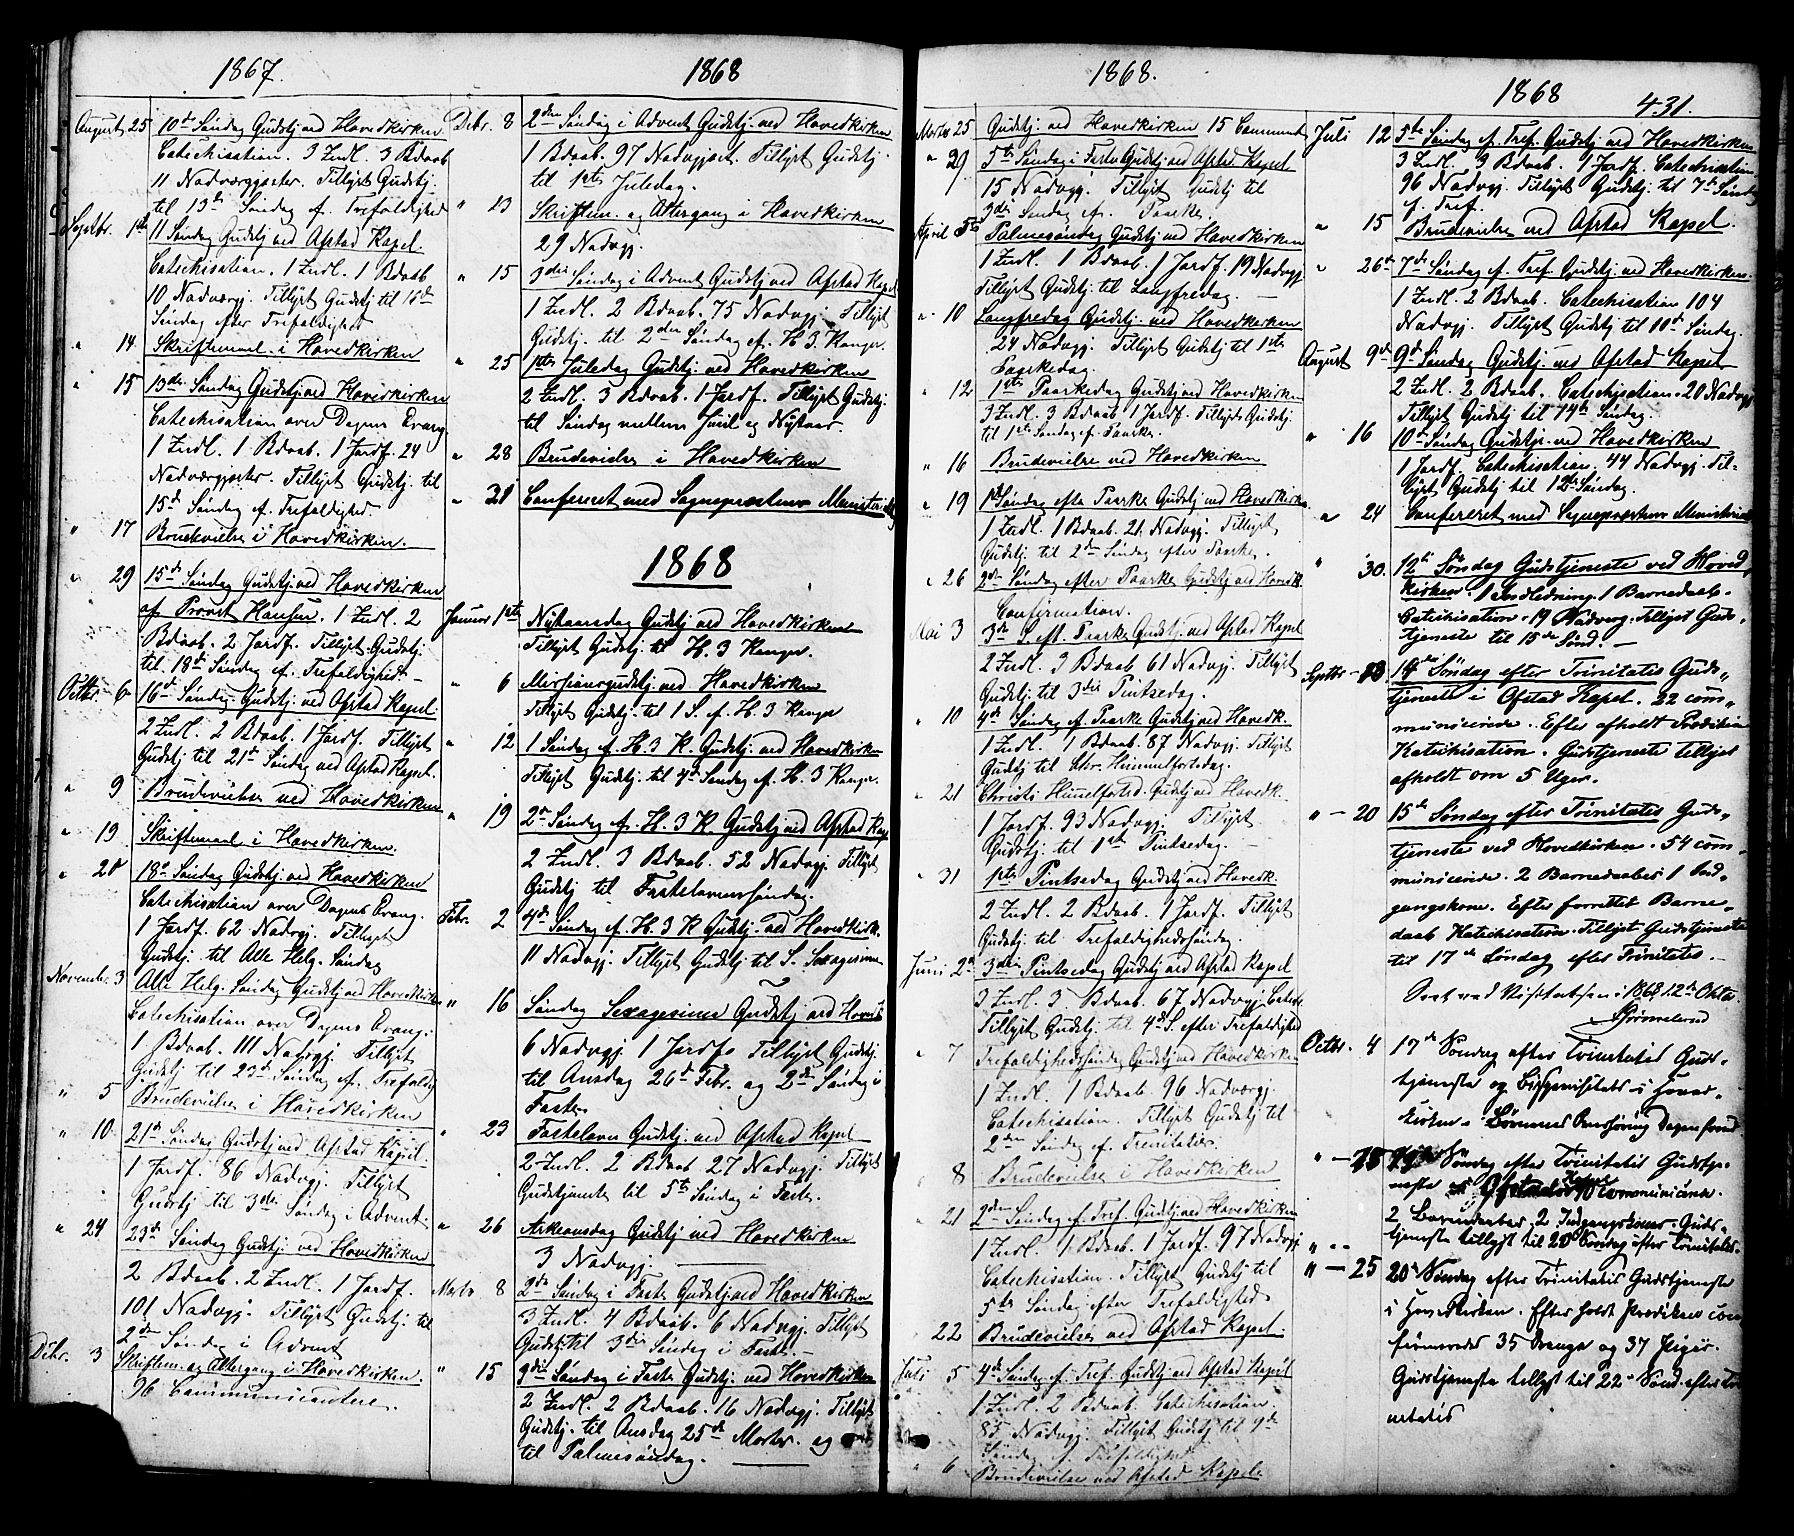 1867.
August 25 10de Søndag Gudstj. ved Hovedkirken
Catechisation. 3 Indl. 3 Bdaab
11 Nadvergjester. Tillyst Gudstj.
til 13de Søndag ef. Trefoldighed
Septbr. 1ste 11 Søndag Gudstj ved Afstad Kapel.
Catechisation. 1 Indl. 1 Bdaab
10 Nadvergj. Tillyst Gudstj til 16de
Søndag efter Trefoldighed
" 14 Skriftemaal i Hovedkirken
" 15 13de Søndag Gudstj ved Hovedkirken
Catechisation over Dagens Evang.
1 Indl. 1 Bdaab. 1 Jordf. 24
Nadvergjester. Tillyst Gudstj. til
15de Søndag ef. Trefoldighed.
" 17 Brudevielse i Hovedkirken.
" 29 15de Søndag Gudstj. ved Hovedkirken
af Provst Hansen. 1 Indl. 2
Bdaab. 2 Jordf. Tillyst Gudstj.
til 18de Søndag ef. Trefoldighed -
Octbr. 6 16de Søndag Gudstj. ved Afstad Kapel.
2 Indl. 2 Bdaab. 1 Jordf. Tillyst
Gudstj til 21de Søndag ved Afstad Kapel.
" 9 Brudevielse ved Hovedkirken
" 19 Skriftemaal i Hovedkirken.
" 20 18de Søndag Gudstj ved Hovedkirken
Catechisation over Dagens Evang.
1 Jordf. 62 Nadvgj. Tillyst
Gudstj. til Alle Helg. Søndag
November 3 Alle Helg. Søndag Gudstj ved Hovedkirken
Catechisation over Dagens Evang.
1 Bdaab. 111 Nadvgj. Tillyst
Gudstj til 23de Søndag ef. Trefoldig
" 5 Brudevielse i Hovedkirken
" 10. 21de Søndag Gudstj ved Afstad Kapel.
1 Jordf. 86 Nadvgj. Tillyst
Gudstj til 3die Søndag i Advent.
" 24 23de Søndag Gudstj. ved Hovedkirken
2 Bdaab. 2 Indl. 1 Jordf.
101 Nadvgj. Tillyst Gudstj. til
2den Søndag i Advent
Dcbr. 3 Skriftem. og Altergang i Hovedkirken.
96 Communicantere.
1868
Dcbr. 8 2den Søndag i Advent Gudstj. ved Hovedkirken
1 Bdaab. 97 Nadvgjest. Tillyst Gudstj.
til 1ste Juledag.
" 13 Skriftem. og Altergang i Hovedkirken
29 Nadvgj.
" 15 3die Søndag i Advent Gudstj ved Afstad Kapel
1 Indl. 2 Bdaab. 75 Nadvgj. Tillyst
Gudstj. til 2den Søndag ef. H. 3 Konger
" 25 1ste Juledag Gudstj. ved Hovedkirken
2 Indl. 3 Bdaab. 1 Jordf. Tillyst Gudstj.
til Søndag mellem Juul og Nytaar.
" 28 Brudevielse i Hovedkirken
" 31 Confereret med Sognepræstens Ministerialbog
1868
Januar 1ste Nytaarsdag Gudstj ved Hovedkirken
Tillyst Gudstj. til H. 3 Konger.
" 6 Missionsgudstj. ved Hovedkirken
Tillyst Gudstj. til 1 S. ef. H. 3 Konger
" 12 1 Søndag ef. H. 3 K. Gudstj. ved Hovedkirken
Tillyst Gudstj. til 4de Søndag ef. H. 3 Konger.
" 19 2den Søndag ef. H. 3 K. Gudstj ved Afstad Kap
2 Indl. 3 Bdaab. 52 Nadvgj. Tillyst
Gudstj til Fastelavnssøndag.
Febr. 2 4de Søndag ef. H. 3 K Gudstj. ved Hovedkirk.
11 Nadvgj. Tillyst Gudstj til S. Sexagesima
" 16 Søndag Sexagesima Gudstj ved Hovedk
6 Nadvgj. 1 Jordf. Tillyst Gudstj.
til Onsdag 26de Febr. og 2den Søndag i
Faste.
" 23 Fastelavn Gudstj. ved Afstad Kapel
2 Indl. 2 Bdaab 27 Nadvgj. Tillyst
Gudstjeneste til 5te Søndag i Faste.
" 26 Askeonsdag Gudstj. ved Hovedkirken
3 Nadvgj.
Marts 8 2den Søndag i Faste Gudstj ved Hovedkirken
3 Indl. 4 Bdaab. 6 Nadvgj. Tillyst
Gudstj til 3die Søndag i Faste. -
" 15 3die Søndag i Faste Gudstj. ved Hovedkirken
2 Indl. 2 Bdaab. 16 Nadvgj. Tillyst
Gudstj. til Onsdag 25de Marts. og
til Palmesøndag.
1868.
Marts 25 Gudstj. ved Hovedkirken 15 Communt
" 29 5te Søndag i Faste Gudstj ved Afstad Kapel
15 Nadvgj. Tillyst Gudstj til
3die Søndag ef. Paaske.
April 5te Palmesøndag Gudstj ved Hovedkirken
1 Indl. 1 Bdaab. 1 Jordf. 19 Nadvgj
Tillyst Gudstj til Langfredag.
" 10 Langfredag Gudstj. ved Hovedkirken
24 Nadvgj. Tillyst Gudstj til 1ste
Paaskedag.
" 12 1ste Paaskedag Gudstj ved Hovedkirken
3 Indl. 3 Bdaab 1 Jordf. Tillyst Gudstj.
til 1ste Søndag ef. Paaske.
" 16 Brudevielse ved Hovedkirken
" 19 1ste Søndag efter Paaske Gudstj ved Hovedkirken
1 Indl. 1 Bdaab 21 Nadvgj. Tillyst
Gudstj. til 2den Søndag efter Paaske.
" 26 2den Søndag efter Paaske Gudstj ved Hovedk
Confirmation.
Mai 3 3die S. eft. Paaske Gudstj. ved Afstad Kapel
2 Indl. 3 Bdaab 61 Nadvgj. Tillyst
Gudstj. til 3die Pintsedag.
" 10 4de Søndag ef. Paaske Gudstj ved Hovedk.
1 Indl. 1 Bdaab. 87 Nadvgj. Tillyst
Gudstj til Chr. Himmelfartsdag.
" 21 Christi Himmelfartsd. Gudstj ved Hovedk.
1 Jordf. 93 Nadvgj. Tillyst
Gudstj. til 1ste Pintsedag.
" 31 1ste Pintsedag Gudstj ved Hovedk.
2 Indl. 2 Bdaab. 1 Jordf. Tillyst
Gudstj. til Trefoldighedssøndag.
Juni 2den 3die Pintsedag Gudstj ved Afstad Kapel
3 Indl. 3 Bdaab. 67 Nadvgj. Catech.
Tillyst Gudstj. til 4de S. efter Trefoldighed
" 7 Trefoldighedssøndag Gudstj ved Hovedkirken
1 Indl. 1 Bdaab 96 Nadvergj.
Catechisation. Tillyst Gudstj til
2den Søndag ef. Trinitatis.
" 8 Brudevielse i Hovedkirken
" 21 2den Søndag ef. Tref. Gudstj ved Hovedkirken
1 Indl. 1 Bdaab. 1 Jordf. 97 Nadvgj
Catechisation. Tillyst Gudstj til
5te Søndag efter Trefoldighed
22 Brudevielse ved Afstad Kapel.
Juli 5 4de Søndag ef. Tref. Gudstj ved Afstad Kapel
1 Indl. 2 Bdaab. Catechisation.
85 Nadvgj. Tillyst Gudstj til 9de
Søndag ef. Trefoldighed
" 6 Brudevielse ved Afstad Kapel
1868 431.
Juli 12 5te Søndag ef. Tref. Gudstj ved Hovedkirken
3 Indl. 3 Bdaab. 1 Jordf. Catechisation
96 Nadvgj. Tillyst Gudstj. til 7de Søndag
f. Tref.
" 15 Brudevielse ved Afstad Kapel.
" 26de 7de Søndag ef. Tref. Gudstj ved Hovedkirken.
1 Indl. 2 Bdaab. Catechisation 104
Nadvgj. Tillyst Gudstj til 10de Søndag.
August 9de 9de Søndag Gudstj. ved Afstad Kapel
2 Indl. 2 Bdaab. Catechisation. 20 Nadvgj
Tillyst Gudstj til 14de Søndag.
" 16 10de Søndag Gudstj. ved Hovedkirken
1 Jordf. Catechisation. 44 Nadvgj. Til-
lyst Gudstj til 12te Søndag.
" 24 Confereret med Sognepræstens Ministerial
" 30. 12te Søndag Gudstjeneste ved Hoved-
kirken. 1 Indledning. 1 Barnedaab.
Catichisation. 19 Nadverg. Tillyst Guds-
tjeneste til 15de Sønd. -
Septbr - 13 14de Søndag efter Trinitatis Guds-
tjeneste i Ofstad Kapel. 22 com-
municerende. Efter afholdt Prædiken
Katechisation. Gudstjeneste tillyst
afholdt om 5 Uger.
" - 20 15de Søndag efter Trinitates Guds-
tjeneste ved Hovedkirken. 54 com-
municerende. 2 Barnedaaber 1 Ind-
gangskone. Efter forrettet Barne-
daab Katechisation. Tillyst Gudstjeneste
til 17de Søndag efter Trinitates. -
Seet ved Visitatsen i 1868 12te Okto.
Octbr. 4 17de Søndag efter Trinitatis Guds-
tjeneste og Bispevisitats i Hoved-
kirken. Børnenes Overhøring Dagen forud
" - 18 Søndag efter Trinitatis Gudstje-
neste i Ofstads Kapel 10 Communicerende.
2 Barnedaaber. 2 Indgangskoner. Guds-
tjeneste tillyst til 20de Søndag efter Trinitatis.
" - 25 20de Søndag efter Trinitatis Gudstjeneste
i Hovedkirken. Efter holdt Prædiken con-
firmeredes 35 Drenge og 37 Piger.
Gudstjeneste tillyst til 22de Sønd. efter Tri
nitatis